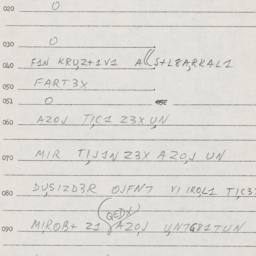 020 O
030 O
040 F1N KRUZ+1V1 A((S+L8A,RKAL1
050 FART3X
051 O
060 AZOJ TIC1 Z3X UN
070 MIR TIJ1N Z3X AZOJ UN
080 DUSIZD3R OJFN7 VI IROL1 TIC3
QEDX
090 MIROB+ Z1 AZOJ UN7G81TUN